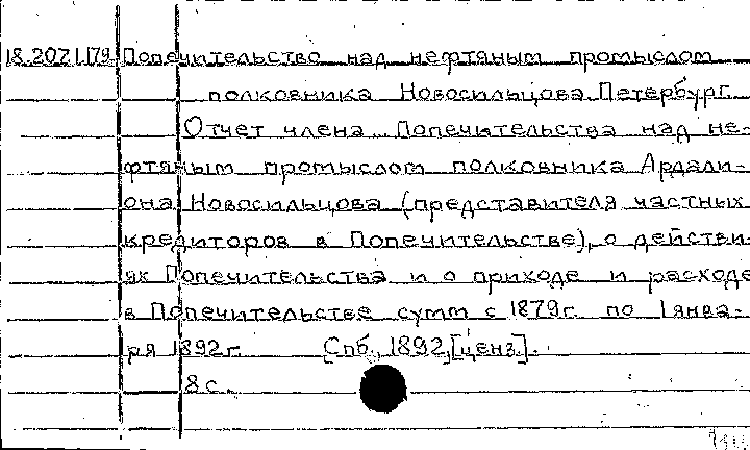 18.207.1.179 Попечительство над нефтяным промыслом
полковника Новосильцова. Петербург.
Отчет члена Попечительства над не-
фтяным промыслом полковника Ардали-
она Новосильцова (представителя частных
кредиторов в Попечительстве), о действи-
ях Попечительства и о приходе и расходе
в Попечительстве сумм с 1879г. по 1 янва-
ря 1892г. [Спб., 1892, [ценз.].
8с.